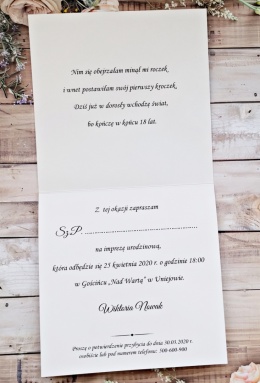 Nim się obejrzałam minął mi roczek
i wnet postawiłam swój pierwszy kroczek.
Dziś już w dorosły wchodzę świat,
bo kończę w końcu 18 lat.
Z tej okazji zapraszam
Sz.P. ......................................................
na imprezę urodzinową,
która odbędzie się 25 kwietnia 2020 r. o godzinie 18:00
w Gościńcu „Nad Wartą” w Uniejowie.
Wiktoria Nowak
Proszę o potwierdzenie przybycia do dnia 30.03.2020 r.
osobiście lub pod numerem telefonu: 500 600 900